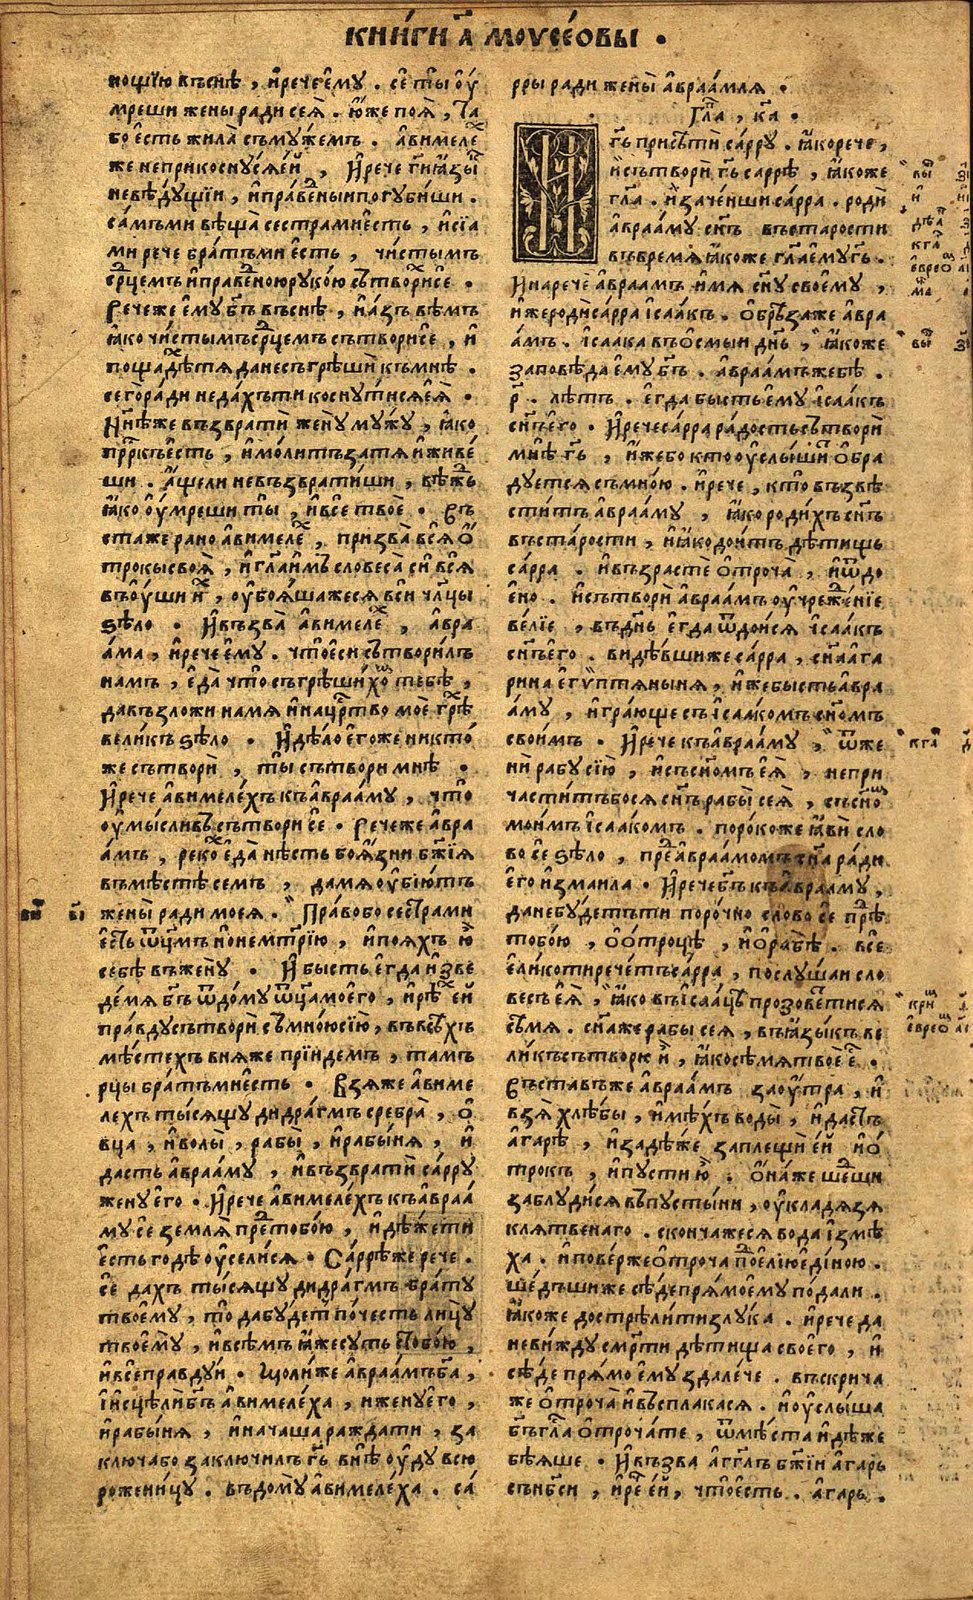 КНИ́ГИ А҃ МОѴСЕ́ОВЫ .
нощїю въснѣ , и҆рече е҆му . се ты̀ оу҆
мреши жены̀ ради сея̀ . ю҆же поя̀ , та
бо е҆сть жила̀ съму́жемъ . а҆вимеле́х
же неприкоснуся е҆й , И҆рече ги҃ ꙗ҆зы́къ
невѣ́дущїи , и҆пра́веныи погуби́ши .
са́мъ ми вѣща̀ сестра ми е҆сть , и҆ сїа̀
ми рече бра́тъ ми е҆сть , чи́стымъ
ср҃цемъ и҆пра́веною руко́ю сътвори́х се .
Рече же е҆му бг҃ъ въснѣ , и҆ а́зъ вѣ́мъ
ꙗ҆ко чи́стымъ ср҃цемъ сътвори́ сѐ , и҆
пощадѣ́х тя да несъгрѣши́ къмнѣ̀ .
сего̀ ради не да́хъ ти косну́тися е҆я̀ .
Ны́нѣ же възвратѝ жену̀ му́жу , ꙗ҆ко
прⷪ҇ркъ е҆сть , и҆ мо́литъ за тя и҆ живе́
ши . а҆ще ли не възврати́ши , вѣ́жь
ꙗ҆ко оу҆мреши ты̀ , и҆ всѐ твоѐ . Въ
ста же рано а҆вимеле́х , призва̀ вся̀ о҆
трокы своя̀ , и҆ гл҃а и҆мъ словеса̀ сѝ вся̀
въ оу҆ши и҆х , оу҆боя́шажеся вси чл҃цы
ѕѣло̀ . И҆ възва̀ а҆вимеле́х , а҆вра
а́ма , и҆ рече е҆му . что̀ е҆си сътвори́лъ
на́мъ , е҆да̀ что̀ съгрѣши́хом тебѣ̀ ,
да възложи на мя и҆ на црⷭ҇тво моѐ грѣ́х
вели́къ ѕѣло̀ . И҆ дѣ́ло е҆го́же никто́
же сътворѝ , ты̀ сътвори мнѣ̀ .
И҆рече а҆вимеле́хъ къ а҆враа́му , что̀
оу҆мы́сливъ сътвори сѐ . Рече же а҆вра
а́мъ , реко́х е҆да̀ нѣ́сть боя́зни бж҃їя
въмѣ́стѣ семъ , да мя оу҆бїю́тъ
жены̀ ради моея̀ . Пра́во бо сестра ми
е҆сть ѿц҃мъ и҆ о не мт҃рїю , и҆ поя́хъ ю҆
себѣ̀ въ жену̀ . И҆ бысть е҆гда̀ и҆зве
де́ мя бг҃ъ ѿ до́му ѿц҃а моего̀ , и҆рѣ́х е҆й
пра́вду сътворѝ съ мно́ю сїю̀ , въ всѣ́хъ
мѣ́стехъ в ня же прїи́демъ , та́мъ
рцы бра́тъ ми е҆сть . Взя же а҆виме
ле́хъ ты́сящу дидра́гмъ сребра̀ , о҆
вца̀ , и҆ волы̀ , рабы̀ , и҆ рабы́ня , и҆
дасть а҆враа́му , и҆ възвратѝ са́рру
жену е҆го̀ . И҆рече а҆вимеле́хъ къ а҆враа́
му се земля̀ преⷣ тобо́ю , и҆ дѣ́же ти
е҆сть го́дѣ оу҆сели́ся . Са́ррѣ же рече .
сѐ да́хъ ты́сящу дидра́гмъ бра́ту
твоему̀ , то да бу́детъ по́честь лицу̀
твоему̀ , и҆ всѣ́мъ ꙗ҆же су́ть с тобо́ю ,
и҆ все правдуй . Помоли́же а҆враа́мъ бг҃а ,
и҆ и҆сцѣли бг҃ъ а҆вимеле́ха , и҆ жену е҆го̀ ,
и҆ рабы́ня , и҆ нача́ша ражда́ти , за
ключа бо заключи́лъ гь҃ внѣ̀ оу҆ду всю
роженицу . въ дому̀ а҆вимеле́ха . са́
рры ради жены̀ а҆враа́мля .
Гла҃ , к҃а .
И
гь҃ присѣтѝ са́рру . ꙗ҆ко рече ,
и҆ сътворѝ гь҃ са́ррѣ , ꙗ҆коже
гл҃а . и҆ заче́нши са́рра . родѝ
а҆враа́му сн҃ъ въ старости
въ время ꙗ҆коже гл҃а е҆му гь҃ .
И҆ наречѐ а҆враа́мъ и҆мя сн҃у своему ,
и҆же родѝ са́рра і҆саа́къ . О҆брѣ́за же а҆вра
а́мъ . і҆саа́ка въ о҆смыи дн҃ь , ꙗ҆коже
заповѣ́да е҆му бг҃ъ . а҆враа́мъ же бѣ̀ .
р҃ . лѣ́тъ . е҆гда бысть е҆му і҆саа́къ
сн҃ъ е҆го̀ . И҆рече са́рра ра́дость сътворѝ
мнѣ̀ гь҃ , и҆же бо кто̀ оу҆слы́шит о҆бра́
дуется съ мно́ю . и҆рече , кто̀ възвѣ
сти́тъ а҆враа́му , ꙗ҆ко роди́хъ сн҃ъ
въ ста́рости , и҆ ꙗ҆ко дои́тъ дѣ́тищь
са́рра . и҆ възрастѐ о҆троча̀ , и҆ ѿдо
е҆но . и҆ сътворѝ а҆враа́мъ оу҆чреже́нїе
ве́лїе , въ дн҃ь е҆гда ѿдои́ся і҆саа́къ
сн҃ъ е҆го . ви́дѣвши же са́рра , сн҃а а҆га
рина е҆гѵ́птяныня , и҆же бысть а҆вра
а́му , и҆гра́юще съ і҆саа́комъ сн҃омъ
своимъ . И҆ рече къ а҆враа́му , ѿже
нѝ рабу сїю̀ , и҆ съ сн҃омъ е҆я̀ , не при
части́тъ бо ся сн҃ъ рабы̀ сея̀ , съ сн҃ом
мои́мъ і҆саа́комъ . поро́ко же ꙗ҆вѝ сло
во сѐ ѕѣло̀ , преⷣ а҆враа́момъ сн҃а ради
е҆го̀ и҆змаила . И҆рече бг҃ъ къ а҆враа́му ,
да не бу́детъ ти поро́чно сло́во сѐ прѣⷣ
тобо́ю , о о҆троцѣ , и҆ о рабѣ̀ . всѐ
е҆лико ти рече́тъ са́рра , послу́шаи сло
весъ е҆я̀ , ꙗ҆ко въ і҆саа́цѣ прозове́т ти ся
сѣ́мя . сн҃а же рабы сея , въ ꙗ҆зы́къ ве
ли́къ сътворю и҆ , ꙗ҆ко сѣ́мя твое е҆сть .
Въставъ же а҆враа́мъ зао́утра , и҆
взя̀ хлѣ́бы , и҆ мѣ́хъ воды̀ , и҆ дастъ
а҆га́рѣ , и҆ задѣ́ же за плещѝ е҆й и҆ о҆
трокъ , и҆ пусти ю҆̀ . о҆на́же ше́дши
заблуди́ся въ пусты́ни , оу҆ кладязя
кля́твенаго . сконча́жеся вода и҆з мѣ́
ха . и҆ пове́рже о҆троча под е҆лїю е҆ди́ною .
ше́дъши же сѣ́де пря́мо е҆му пода́ли .
ꙗ҆коже достре́лити з лу́ка . и҆рече да
не ви́жду сме́рти дѣ́тища своего , и҆
сѣ́де пря́мо е҆му здале́че . въскрича
же о҆троча̀ и҆ въсплакася . и҆ оу҆слы́ша
бг҃ъ гла о҆троча́те , ѿ мѣ́ста и҆дѣ́же
бѣ́яше . И҆ възва̀ а҆гг҃лъ бж҃їи а҆га́рь
съ нб҃си , и҆рече е҆й , что̀ е҆сть . а҆га́рь .